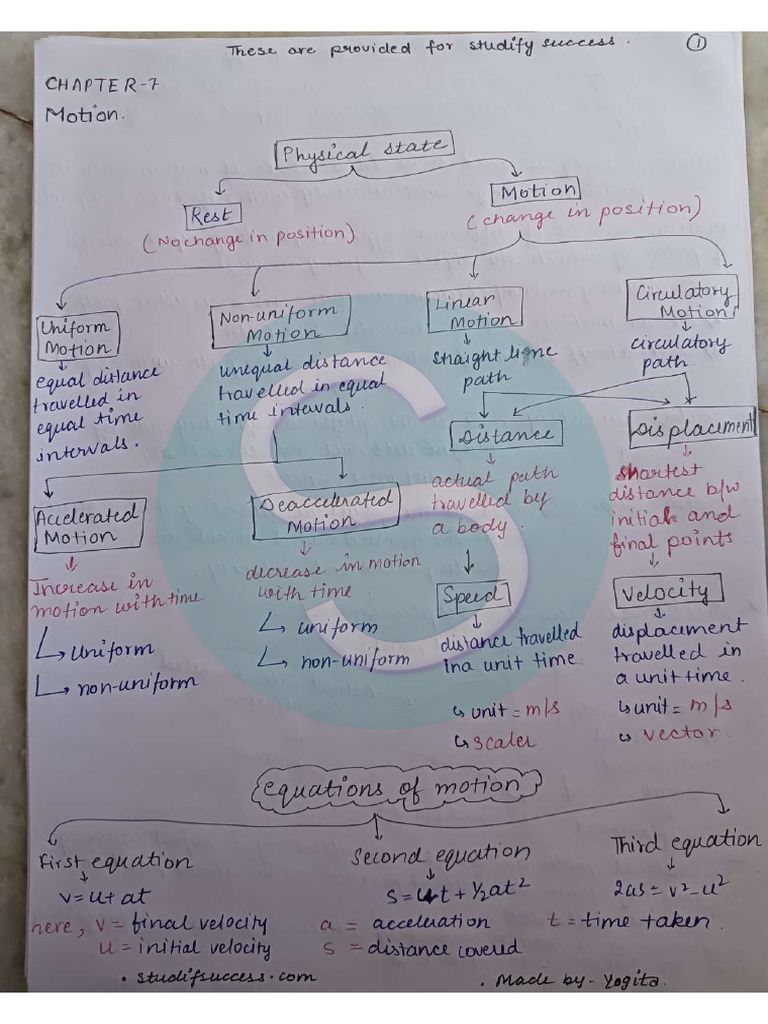 These are provided for studify success.
1
CHAPTER-7
Motion.
Physical state
Rest
(No change in position)
Motion
(change in position)
Uniform
Motion
equal distance
travelled in
equal time
intervals.
Non-uniform
Motion
unequal distance
travelled in equal
time intervals.
Linear
Motion
straight line
path
Circulatory
Motion
circulatory
path.
Accelerated
Motion
Increase in
motion with time
uniform
non-uniform
Deaccelerated
Motion
decrease in motion
with time.
uniform
non-uniform
Distance
actual path
travelled by
a body.
Speed
distance travelled
in a unit time.
unit = m/s
scaler
Displacement
shortest
distance b/w
initial and
final points.
Velocity
displacement
travelled in
a unit time.
unit = m/s
vector.
equations of motion
First equation
v=u+at
Second equation
s=ut+½at²
Third equation
2as=v²-u²
here, v= final velocity a = acceleration t = time taken.
u = initial velocity s = distance covered
. studifsuccess.com . Made by- Yogita.
S